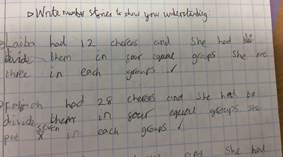 ▷ Write number stories to show your understanding
Laiba had 12 cheeses and She had to
divide them in four equal groups She put
three in each groups ✓
had 28 cheeses and She had to
divide them in four equal groups She
put seven in each groups ✓
She had